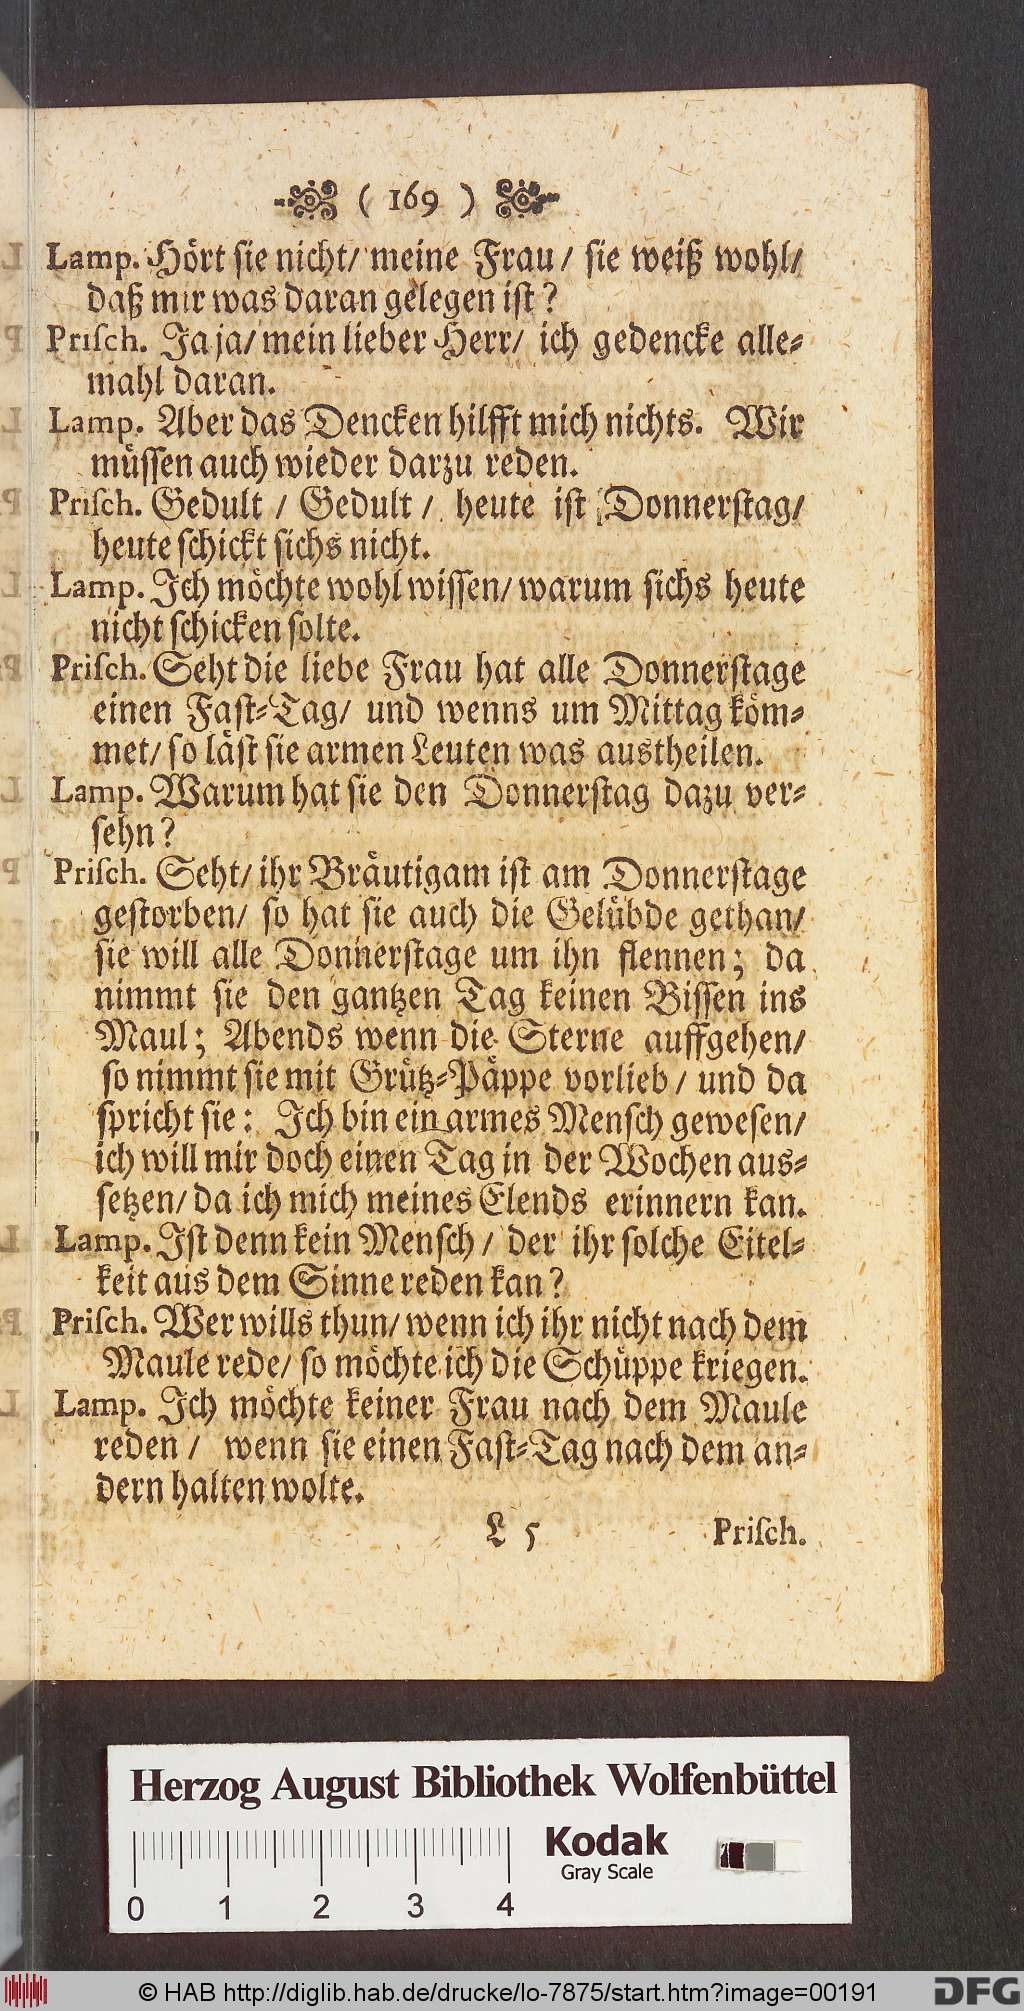 ( 169 )
Lamp. Hört sie nicht/ meine Frau/ sie weiß wohl/
daß mir was daran gelegen ist?
Priſch. Ja ja/ mein lieber Herr/ ich gedencke alle⸗
mahl daran.
Lamp. Aber das Dencken hilfft mich nichts. Wir
müſſen auch wieder darzu reden.
Priſch. Gedult / Gedult / heute iſt Donnerſtag/
heute ſchickt ſichs nicht.
Lamp. Ich möchte wohl wiſſen/ warum ſichs heute
nicht ſchicken ſolte.
Priſch. Seht die liebe Frau hat alle Donnerſtage
einen Faſt⸗Tag/ und wenns um Mittag köm⸗
met/ ſo läſt ſie armen Leuten was austheilen.
Lamp. Warum hat ſie den Donnerſtag dazu ver⸗
ſehn?
Priſch. Seht/ ihr Bräutigam iſt am Donnerſtage
geſtorben/ ſo hat ſie auch die Gelübde gethan/
ſie will alle Donnerſtage um ihn flennen; da
nimmt ſie den gantzen Tag keinen Biſſen ins
Maul; Abends wenn die Sterne auffgehen/
ſo nimmt ſie mit Grütz⸗Päppe vorlieb / und da
ſpricht ſie: Ich bin ein armes Menſch geweſen/
ich will mir doch einen Tag in der Wochen aus⸗
ſetzen/ da ich mich meines Elends erinnern kan.
Lamp. Iſt denn kein Menſch / der ihr ſolche Eitel⸗
keit aus dem Sinne reden kan?
Priſch. Wer wills thun/ wenn ich ihr nicht nach dem
Maule rede/ ſo möchte ich die Schüppe kriegen.
Lamp. Ich möchte keiner Frau nach dem Maule
reden / wenn ſie einen Faſt⸗Tag nach dem an⸗
dern halten wolte.
L 5 Priſch.
Herzog August Bibliothek Wolfenbüttel
Kodak
Gray Scale
0 1 2 3 4
© HAB http://diglib.hab.de/drucke/lo-7875/start.htm?image=00191
DFG